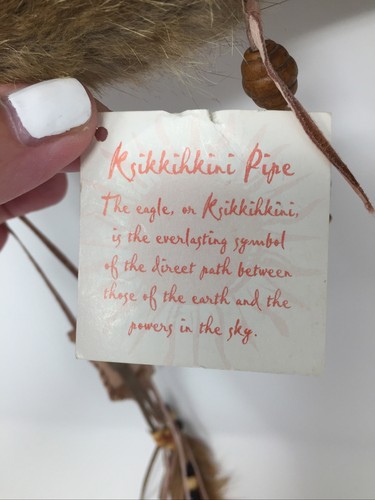 Ksikkihkini Pipe
The eagle, or Ksikkihkini,
is the everlasting symbol
of the direct path between
those of the earth and the
powers in the sky.